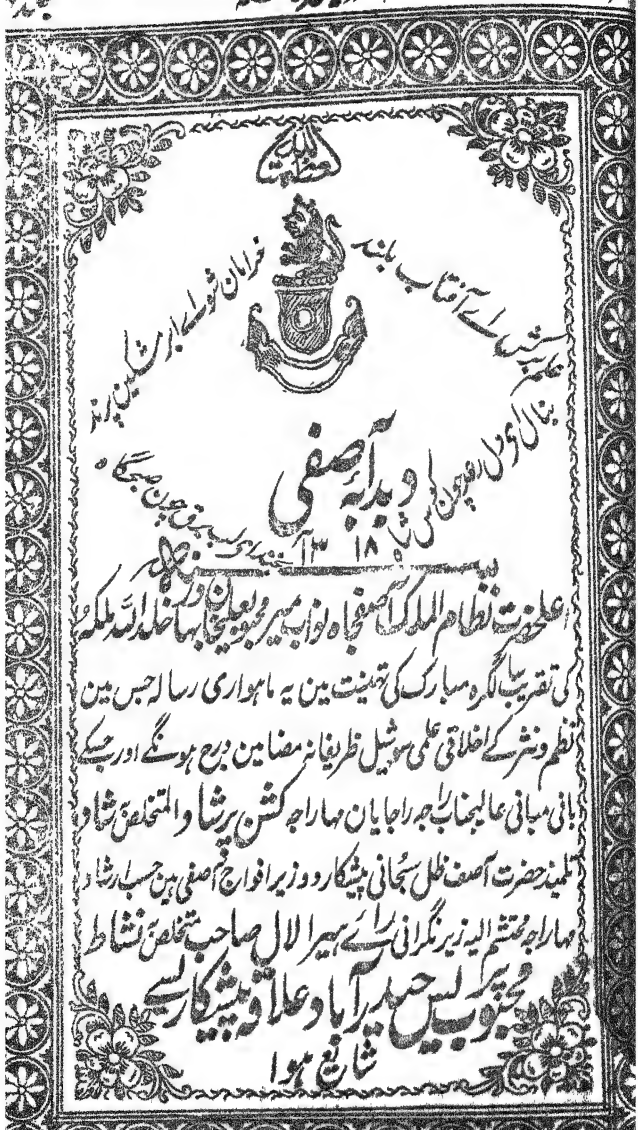 العظمة للہ
خرامان شو اے ابر مشکین پرند
علم برکش اے آفتاب بلند
بنال ای دل رعد چون کوس شاہ
بخند ای لب برق چون صبحگاہ
دبدبۂ آصفی
۱۳۱۸
اعلحضرت نظام الملک آصفجاہ نواب میر محبوبعلیخان بہادر خلد اللہ ملکہٗ
کی تقریب سالگرہ مبارک کی تہنیت مین یہ ماہواری رسالہ جس مین
نظم و نثر کے اخلاقی علمی سوشیل ظریفانہ مضامین درج ہونگے اور جسکے
بانی مبانی عالیجناب راجہ راجایان مہاراجہ کشن پرشاد المتخلص شاد
تلمیذ حضرت آصف ظل سبحانی پیشکار و وزیر افواج آصفی ہین حسب ارشاد
مہاراجہ محتشم الیہ زیر نگرانی رائے ہیرا لال صاحب متخلص نشاط
محبوب پریس حیدرآباد علاقہ پیشکاری سے
شایع ہوا